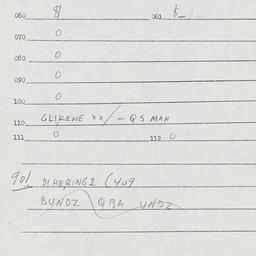 060 $ 061 $-
070 0
080 0
090 0
100 0
110 GLIKENE XX/-QS MAN
111 0 112 0
901 DIHERING2 (409
BUNDZ QBA UNDZ